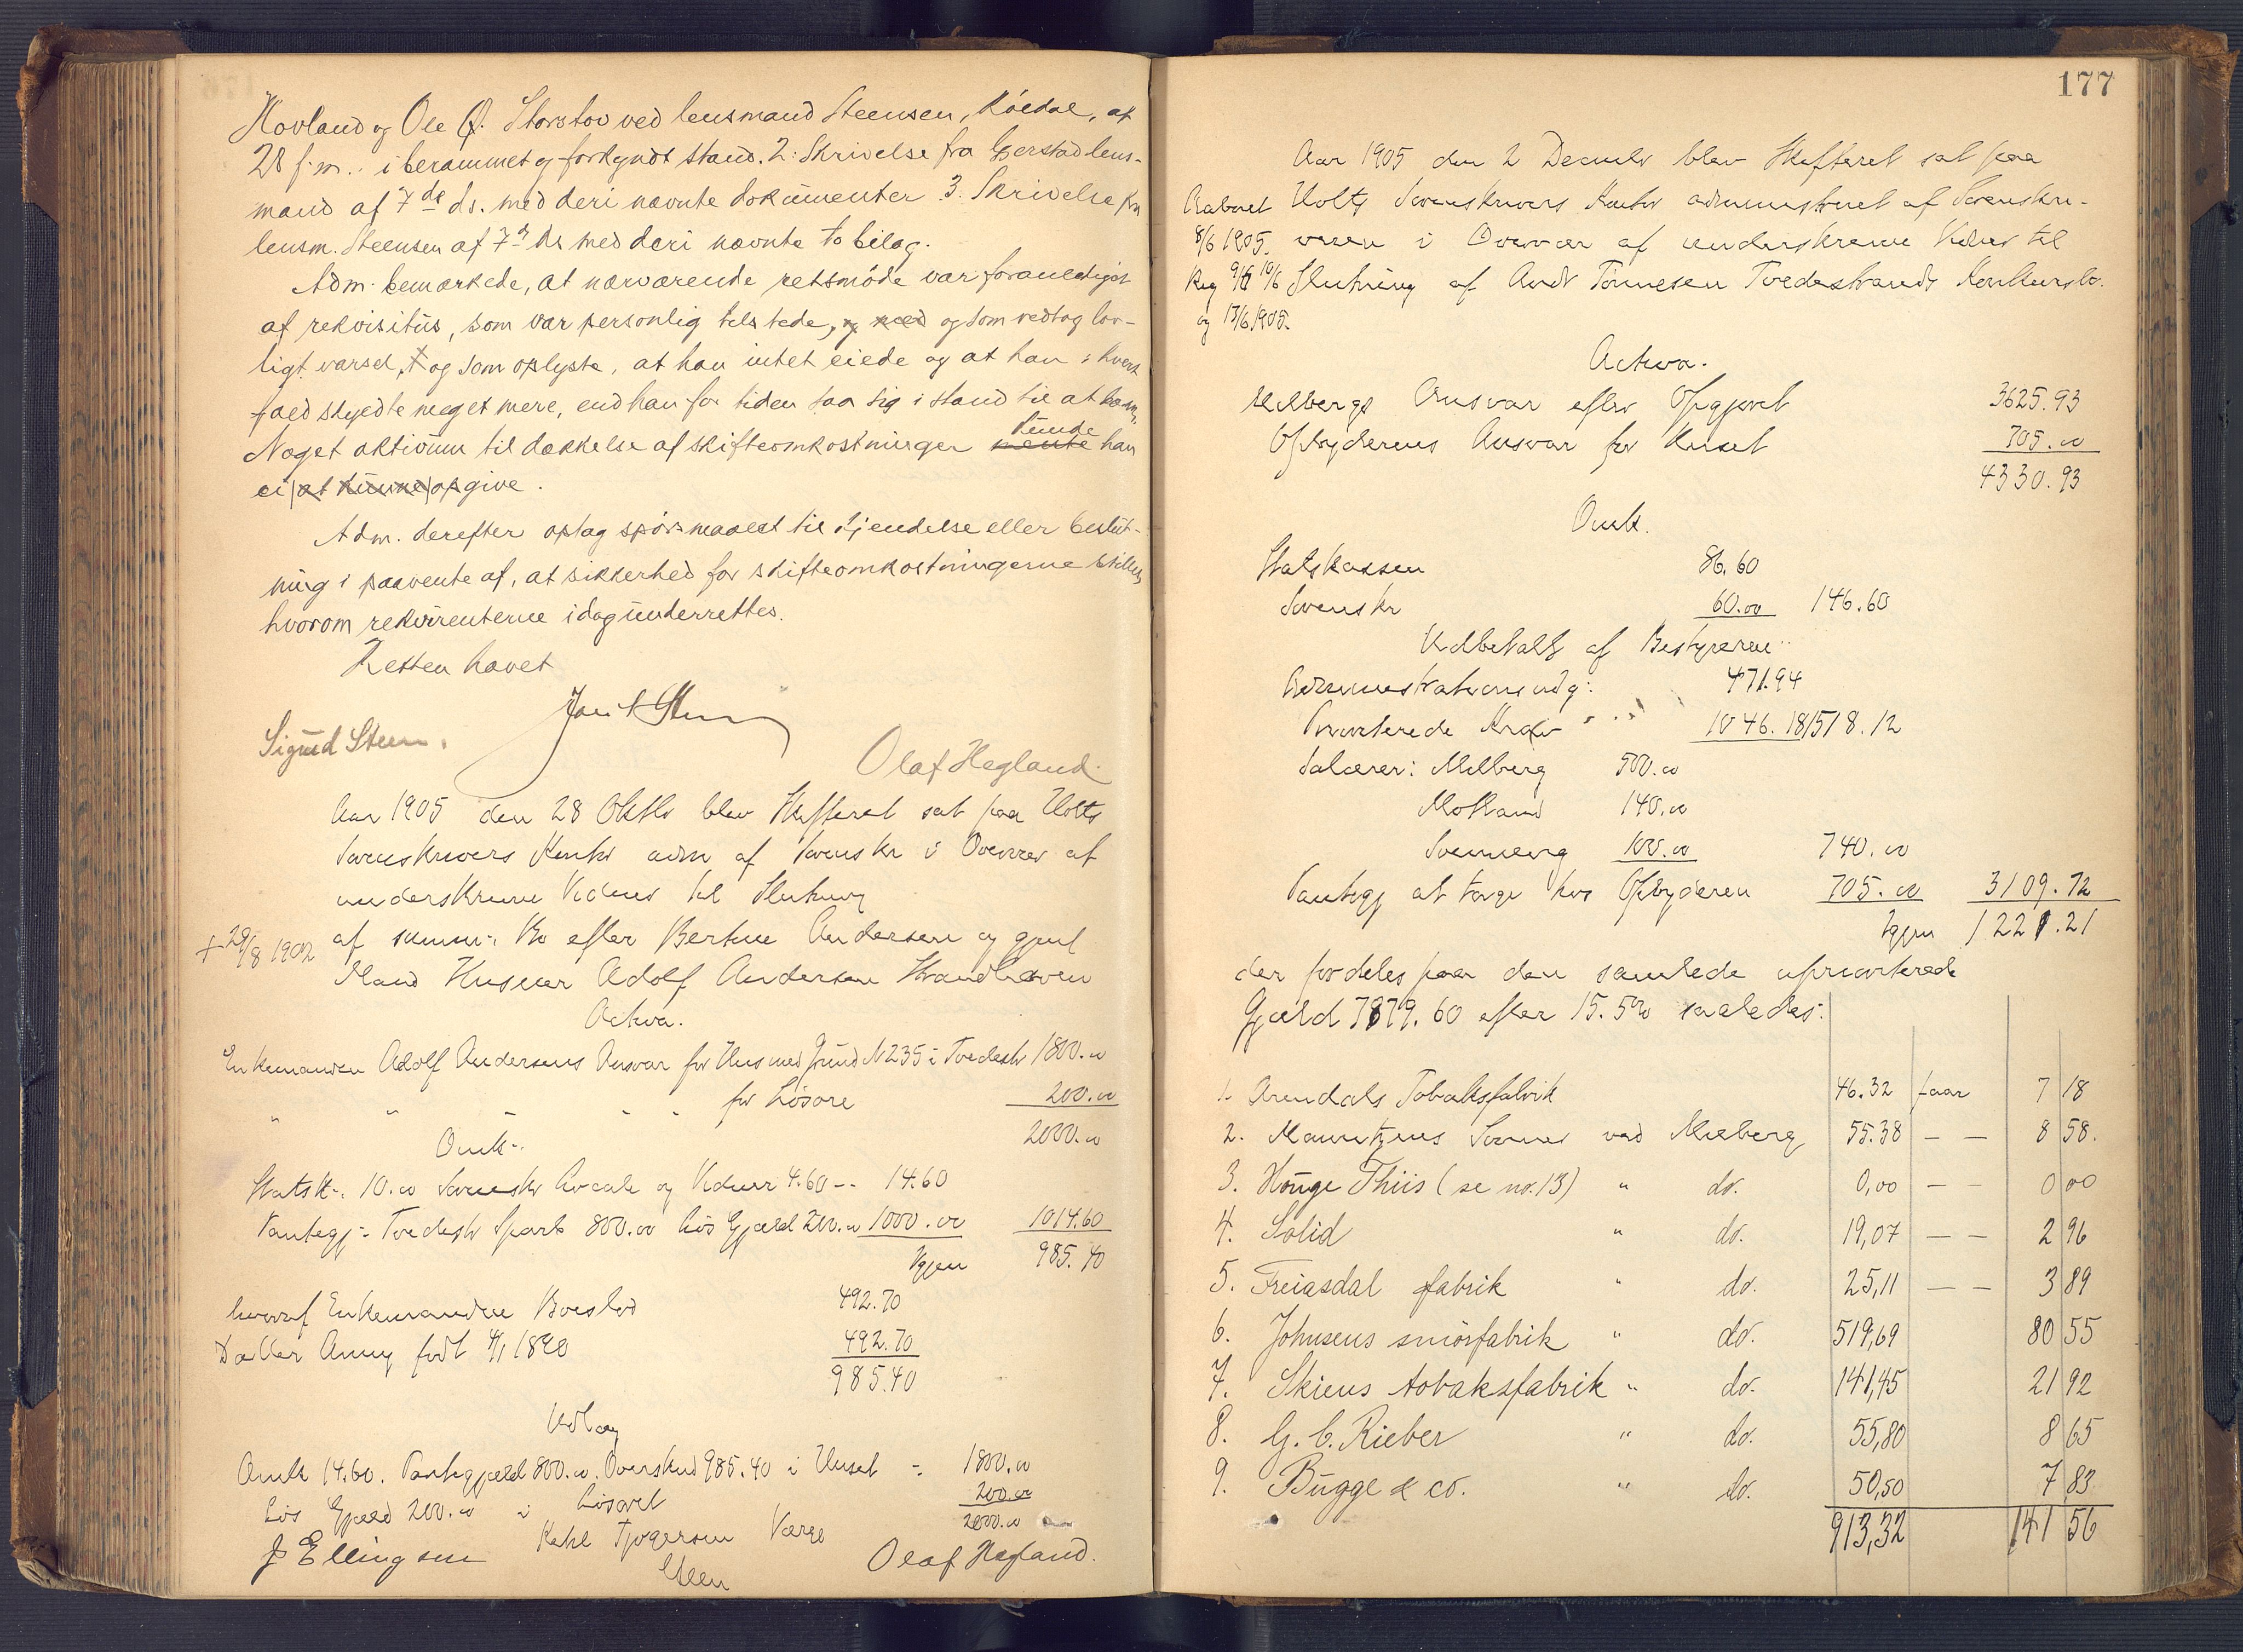 Hovland og Ole Ø. Storstov ved lensmand Steensen, Kóldal, af
28 f.m. i berammet og forkyndt stand. 2: Skrivelse fra Gjerstad lens-
mand af 7de ds. med deri nævnte dokumenter 3. Skrivelse fra
lensm. Steensen af 7d ds med deri nævnte to bilag.
Adm. bemærkede, at nærværende retsmöde var foranlediget
af rekvisitus, som var personlig tilstede, og med og som vedtog lov-
ligt varsel, og som oplyste, at han intet eiede og at han i hvert
fald skyldte meget mere, end han for tiden saa sig i stand til at
Noget aktivum til dækkelse af skifteomkostninger mente kunde han
ei at kunne opgive.
Adm. derefter optog spörsmaalet til kjendelse eller beslut-
ning i paavente af, at sikkerhed for skifteomkostningerne stilles,
hvorom rekvirenterne idag underrettes.
Retten hævet
Sigurd Steen.
Olaf Hegland.
Aar 1905 den 28 Oktbr blev Skifteret sat paa Holts
Sorenskrivers Kontor adm af Sorenskr i Overvær af
underskrevne Vidner til Slutning
+ 29/8 1902
af samm. Bo efter Bertine Andersen og gjenl
Mand Huseier Adolf Andersen Strandhaven
Activa.
Enkemanden Adolf Andersens Ansvar for Hus med Grund N 235 i Tvedestr 1800.00
" " " " " for Lösöre 200.00
2000.00
Omk.
Statsk. 10.00 Sorenskr Avcale og Vidner 4.60 -- 14.60
Pantegj. Tvedestr Spareb 800.00 Lös Gjæld 200.00 1000.00 1014.60
Igjen 985.40
hvoraf Enkemanden Boeslod 492.70
Datter Anny født 4/1 1890 492.70
985.40
Udlæg
Omk 14.60. Pantegjæld 800.00. Overskud 985.40 i Huset - 1800.00
Lös Gjæld 200.00 i Lösöret 200.00
2000.00
J Ellingsen Værge
Steen
Olaf Hegland.
177
Aar 1905 den 2 Decembr blev Skifteret sat paa
Holts Sorenskrivers Kontor administreret af Sorenskri-
veren i Overvær af underskrevne Vidner til
Slutning af Andr Tönnesen Tvedestrands Konkursbo.
Aabnet
8/6 1905.
Reg 9/6 10/6
og 13/6 1905.
Activa.
Melbergs Ansvar efter Opgjøret 3625.93
Opbyderens Ansvar for Huset 705.00
4330.93
Omk.
Statskassen 86.60
Sorenskr 60.00 146.60
Udbetalt af Bestyreren
Administrationsudg: 471.94
Prioriterede Krav 1046.18 1518.12
Salærer: Melberg 500.00
Motland 140.00
100.00 740.00
Pantegj at tage hos Opbyderen 705.00 3109.72
Igjen 1221.21
der fordeles paa den samlede uprioriterede
Gjæld 7879.60 efter 15.5% saaledes:
1. Arendals Tobaksfabrik 46.32 faar 7 18
2. Mauritzens Sönner ved Melberg 55.38 — — 8 58.
3. Hönge Thiis (se no. 13) " do. 0,00 — — 0 00
4. Solid " do. 19,07 — — 2 96
5. Freiasdal fabrik " do. 25,11 — — 3 89
6. Johnsens smörfabrik " do. 519,69 80 55
7. Skiens tobaksfabrik " do. 141,45 21 92
8. G. C. Rieber " do. 55,80 8 65
9. Bugge & co. " do. 50,50 7 83
913,32 141 56